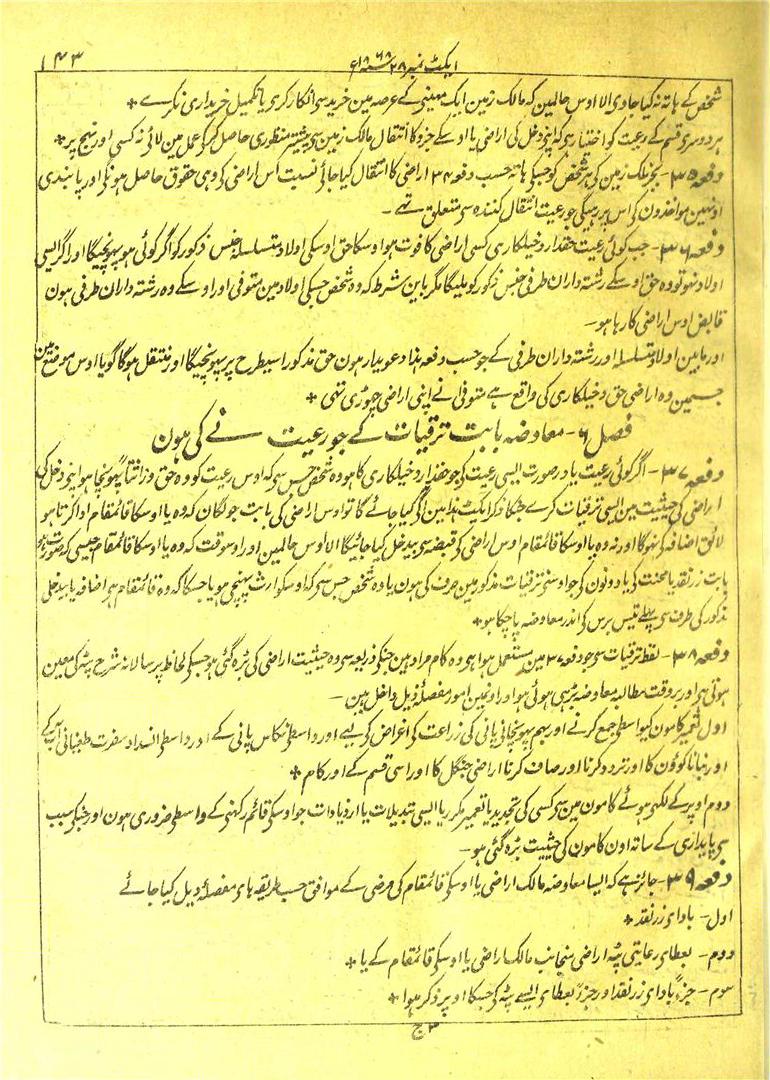 ایکٹ نمبر ۲۸ سنہ ۱۸۶۸ء ۱۴۳
شخص کے ہاتہ نہ کیا جاوی الا اوس حالمین کہ مالک زمین ایک معینی کے عرصہ مین خرید سی انکار کری یا تکمیل خریداری نکرے *
ہر دوسری قسم کے رعیت کو اختیار ہی کہ اپنی دخل کی اراضی یا اوسکے جزو کا انتقال مالک زمین سی پیشتر منظوری حاصل کرکی عمل مین لائی نہ کسی اور نہج پر *
دفعہ ۳۵- بجز مالک زمین کی ہر شخص کو جسکی ہاتہ حسب دفعہ ۳۴ اراضی کا انتقال کیا جائی نسبت اس اراضی کی وہی حقوق حاصل ہونگی اور پابندی
اونہین مواخذون کی اس پر رہیگی جو رعیت انتقال کنندہ سی متعلق تہے -
دفعہ ۳۶- جب کوئی رعیت حقدار دخیلکاری کسی اراضی کا فوت ہو اوسکا حق اوسکی اولاد متسلسلہ جنس ذکور کو اگر کوئی ہو پہونچیگا اور اگر ایسی
اولاد نہو تو وہ حق اوسکے رشتہ داران طرفی جنس ذکور کو ملیگا مگر باین شرط کہ وہ شخص جسکی اولاد مین متوفی اور اوسکے وہ رشتہ داران طرفی ہون
قابض اوس اراضی کا رہا ہو -
اور مابین اولاد متسلسلہ اور رشتہ داران طرفی کے جو حسب دفعہ ہذا دعویدار ہون حق مذکور اسیطرح پر پہونچیگا اور منتقل ہوگا گویا اوس موضع مین
جسمین وہ اراضی حق دخیلکاری کی واقع ہے متوفی نے اپنی اراضی چہوڑی تہی *
فصل ۶- معاوضہ بابت ترقیات کے جو رعیت نے کی ہون
دفعہ ۳۷- اگر کوئی رعیت یا در صورت ایسی رعیت کی جو حقدار دخیلکاری کا ہو وہ شخص جس سی کہ اوس رعیت کو وہ حق وراثتاً پہونچا ہو اپنی دخل کی
اراضی کی حیثیت مین ایسی ترقیات کرے جنکا ذکر ایکٹ ہذا مین کیا جائے گا تو اوس اراضی کی بابت جو لگان کہ وہ یا اوسکا قائمقام ادا کرتا ہو
لائق اضافہ کی نہوگا اور نہ وہ یا اوسکا قائمقام اوس اراضی کی قبضہ سی بیدخل کیا جائیگا الا اوس حالمین اور اوسوقت کہ وہ یا اوسکا قائمقام جیسی کہ صورت ہو
بابت زر نقد یا محنت کی یا دونون کی جو اوسنی ترقیات مذکور مین صرف کی ہون یا وہ شخص جس سی کہ اوسکو ارث پہنچی ہو یا جسکا کہ وہ قائمقام ہی اضافہ یا بیدخلی
مذکور کی طرف سی پہلے تیس برس کی اندر معاوضہ پا چکا ہو *
دفعہ ۳۸- لفظ ترقیات سی جو دفعہ ۳۷ مین مستعمل ہوا ہی وہ کام مراد ہین جنکی ذریعہ سی وہ حیثیت اراضی کی بڑہ گئی ہو جسکی لحاظ پر سالانہ شرح پٹہ کی معین
ہوتی ہی اور بر وقت مطالبہ معاوضہ بڑہی ہوئی ہو اور اونمین امور مفصلہ ذیل داخل ہین -
اول تعمیر کامون کیواسطی جمع کرنے اور بہم پہونچانی پانی کی زراعت کی اغراض کے لیے اور واسطی نکاس پانی کے اور واسطی انسداد مضرت طغیانی آب کے
اور بنانا کوؤن کا اور تردد کرنا اور صاف کرنا اراضی جنگل کا اور اسی قسم کے اور کام *
دوم اوپر کے لکہی ہوئے کامون مین سی کسی کی تجدید یا تعمیر مکرر یا ایسی تبدیلات یا ازدیادات جو اوسکی قائم رکہنی کے واسطی ضروری ہون اور جنکی سبب
سی پایداری کے ساتہ اون کامون کی حیثیت بڑہ گئی ہو -
دفعہ ۳۹- جائز ہے کہ ایسا معاوضہ مالک اراضی یا اوسکی قائمقام کی مرضی کے موافق حسب طریقہ ہای مفصلہ ذیل کیا جائے
اول - بادای زر نقد *
دوم - بعطای رعایتی پٹہ اراضی منجانب مالک اراضی یا اوسکی قائمقام کے یا *
سوم - جزءً بادای زر نقد اور جزءً بعطای ایسے پٹہ کی جسکا اوپر ذکر ہوا *
۳ ج